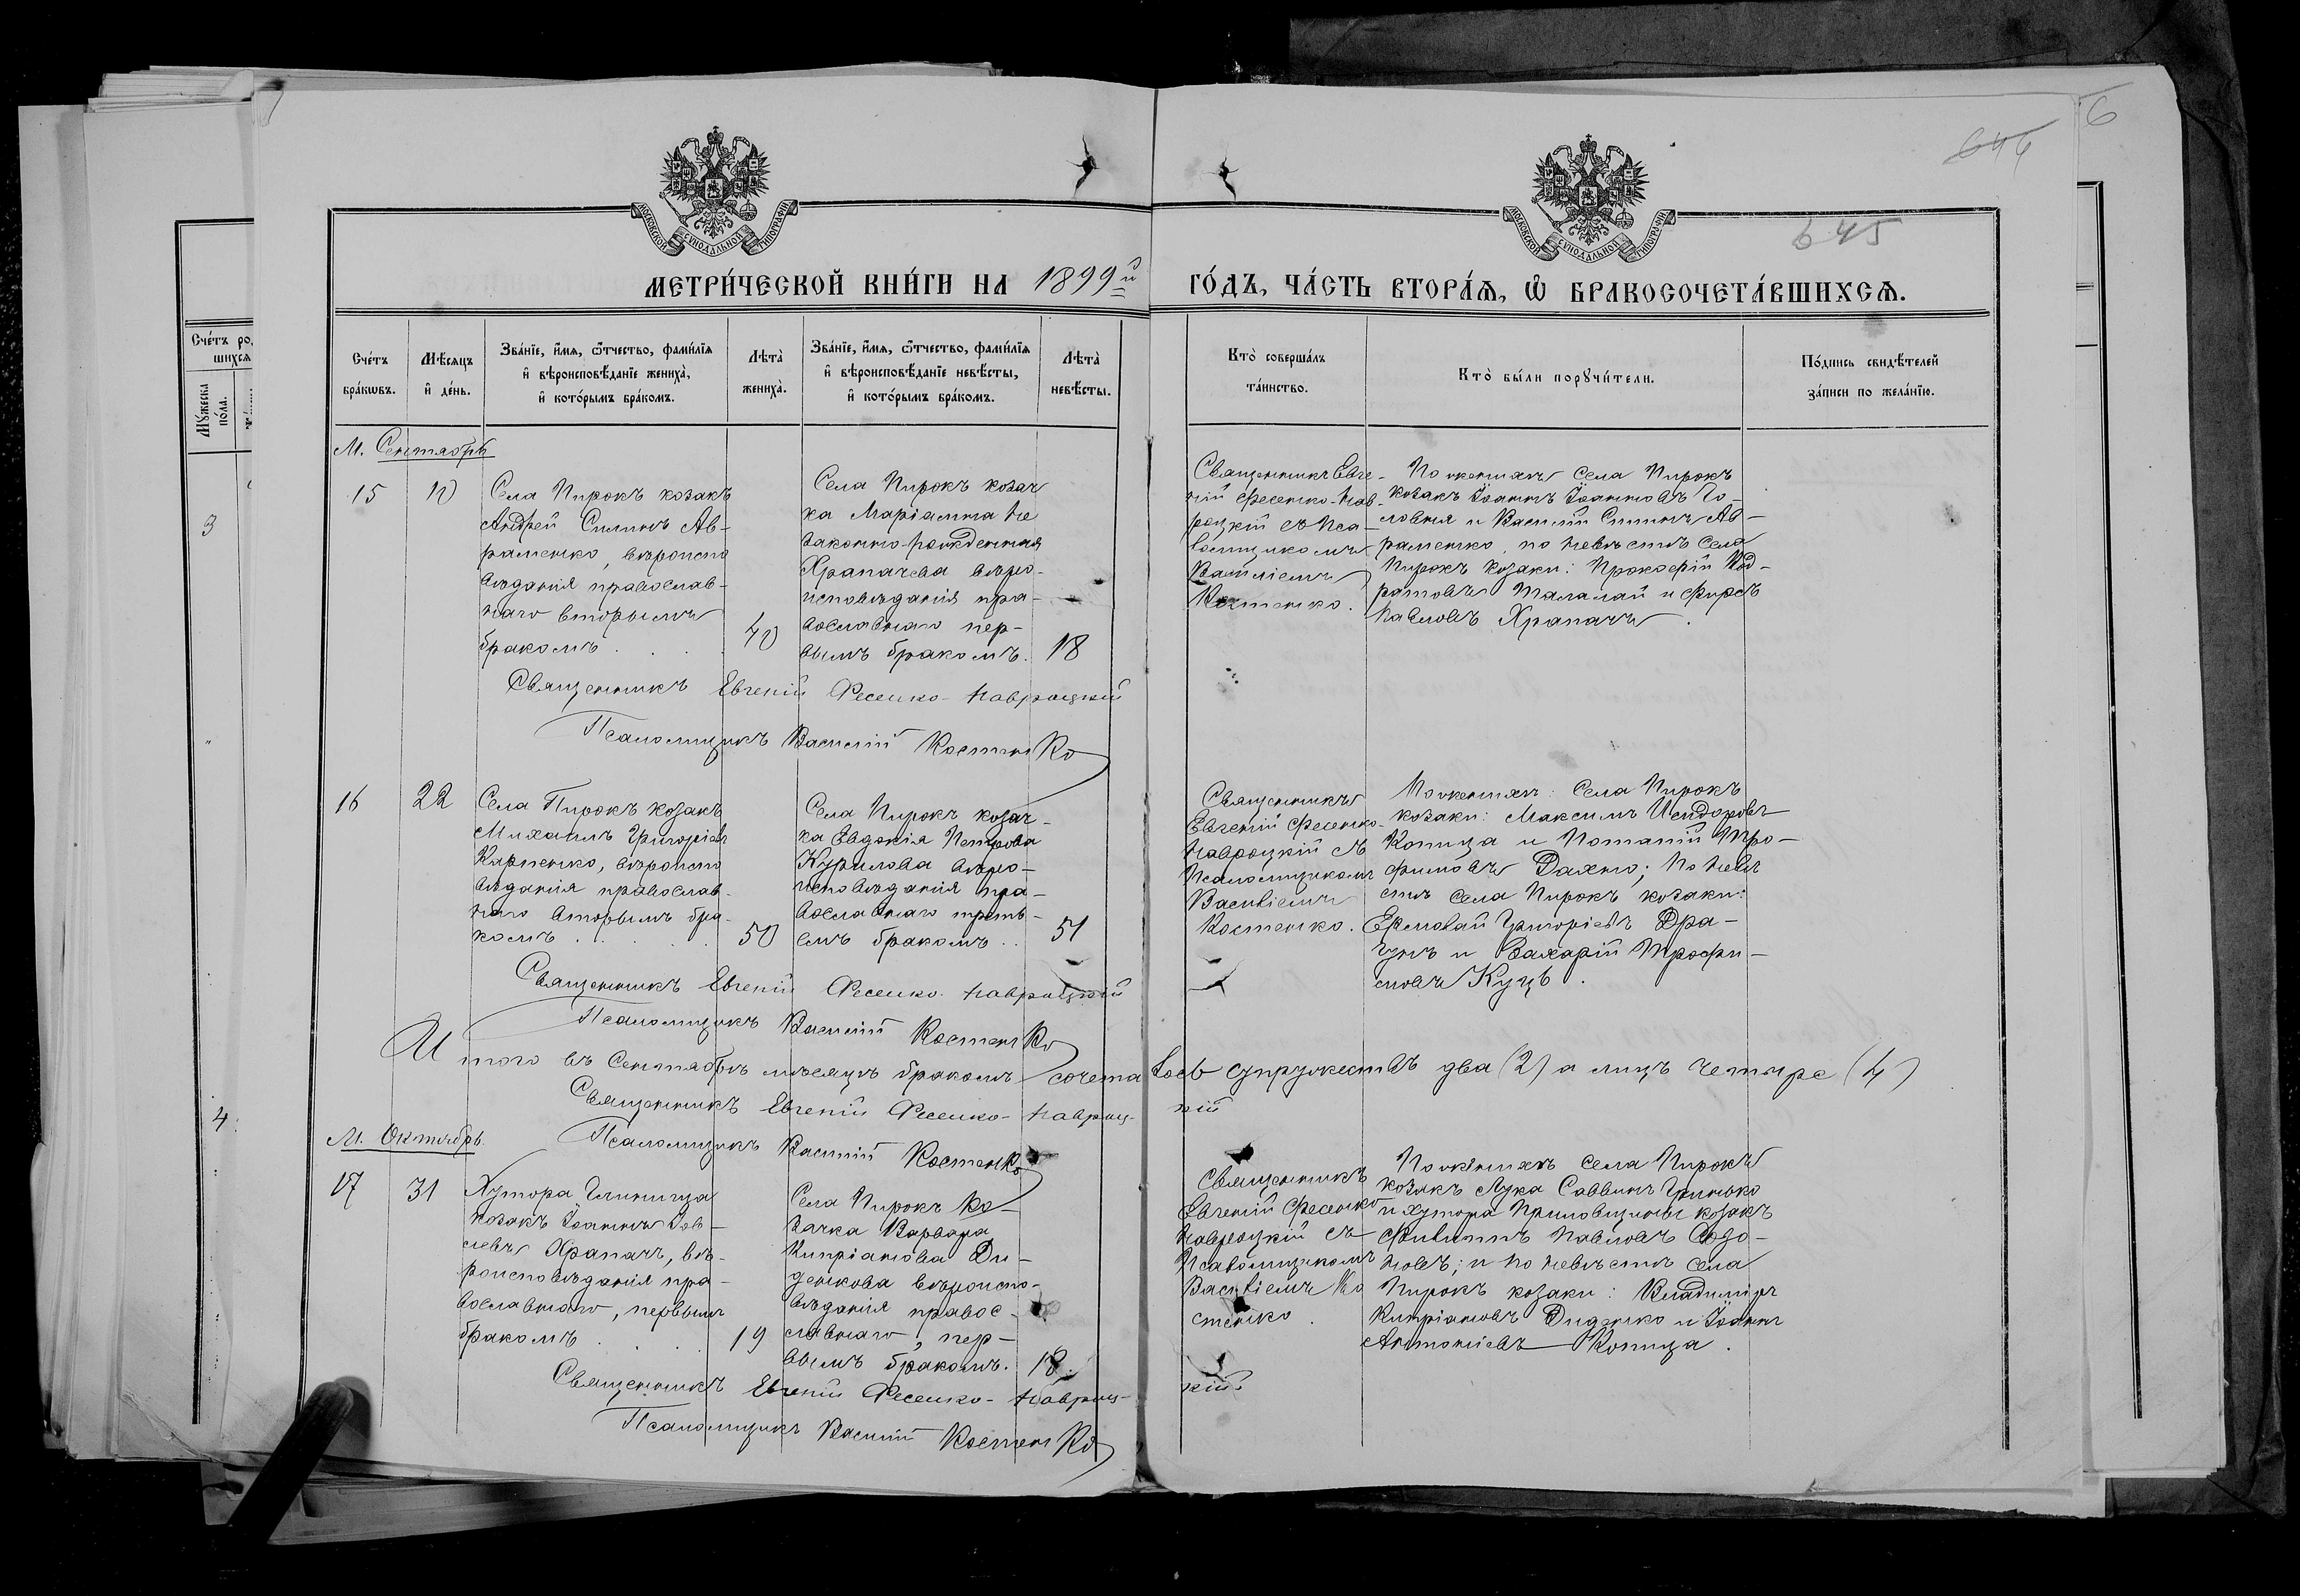 646
6
645
МОСКОВСКОЙ СѴНОДАЛЬНОЙ ТИПОГРАФІИ
МОСКОВСКОЙ СѴНОДАЛЬНОЙ ТИПОГРАФІИ
МЕТРИ́ЧЕСКОЙ КНИ́ГИ НА 1899й ГО́ДЪ, ЧА́СТЬ ВТОРА́Я, Ѡ БРАКОСОЧЕТА́ВШИХСЯ.
Сче́тъ ро
шихся
Мꙋжеска
по́ла.
3
4
Сче́тъ
бра́кωвъ.
Мѣ́сяцъ
и҆ де́нь.
Зва́нїе, и҆́мя, ѻ҆́тчество, фами́лїя
и҆ вѣроисповѣ́данїе жениха̀,
и҆ кото́рымъ бра́комъ.
Лѣта̀
жениха̀.
Зва́нїе, и҆́мя, ѻ҆́тчество, фами́лїя
и҆ вѣроисповѣ́данїе невѣ́сты,
и҆ кото́рымъ бра́комъ.
Лѣта̀
невѣ́сты.
Кто̀ соверша́лъ
та́инство.
Кто̀ бы́ли порꙋчи́тели.
По́дпись свидѣ́телей
за́писи по жела́нїю.
М. Сентябрь
15
10
Села Пирокъ козакъ
Андрей Силинъ Ав-
раменко, вѣроиспо
вѣданія православ-
наго вторымъ
бракомъ . . . .
40
Села Пирокъ козач
ка Маріанна не
законно-рожденная
Храпачева вѣро-
исповѣданія пра-
вославнаго пер-
вымъ бракомъ.
18
Священникъ Евге-
ній Фесенко-Нав-
роцкій съ Пса-
ломщикомъ
Василіемъ
Костенко.
По женихѣ села Пирокъ
козакъ Іоаннъ Іоанновъ Го-
ловня и Василій Силинъ Ав-
раменко, по невѣстѣ села
Пирокъ козаки: Прокофій Код-
ратовъ Талалай и Фирсъ
Павловъ Храпачъ.
Священникъ Евгеній Фесенко-Навроцкій
Псаломщикъ Василій Костенко
16
22
Села Пирокъ козакъ
Михаилъ Григоріевъ
Карпенко, вѣроиспо
вѣданія православ-
наго вторымъ бра-
комъ . . . . .
50
Села Пирокъ козач-
ка Евдокія Петрова
Курилова вѣро-
исповѣданія пра-
вославнаго треть-
емъ бракомъ . .
51
Священникъ
Евгеній Фесенко-
Навроцкій съ
Псаломщикомъ
Василіемъ
Костенко.
По женихѣ: села Пирокъ
козаки: Максимъ Исидоровъ
Копица и Потапій Тро-
фимовъ Дахно; по невѣ
стѣ села Пирокъ козаки:
Ермолай Григоріевъ Дра-
гунъ и Захарій Трофи-
мовъ Куцъ.
Священникъ Евгеній Фесенко-Навроцкій
Псаломщикъ Василій Костенко
Итого въ Сентябрѣ мѣсяцѣ бракомъ сочеталось супружествъ два (2) а лицъ четыре (4)
Священникъ Евгеній Фесенко-Навроцкій
Псаломщикъ Василій Костенко
М. Октябрь
17
31
Хутора Глинища
козакъ Іоаннъ Іов-
левъ Храпачъ, вѣ-
роисповѣданія пра-
вославнаго, первымъ
бракомъ . . . .
19
Села Пирокъ ко-
зачка Варвара
Кипріанова Ди-
денкова вѣроиспо-
вѣданія правос-
лавнаго, пер-
вымъ бракомъ.
18.
Священникъ
Евгеній Фесенко
Навроцкій съ
Псаломщикомъ
Василіемъ Ко
стенко.
По женихѣ села Пирокъ
козакъ Лука Саввинъ Гринько
и хутора козакъ
Филиппъ Павловъ
новъ; и по невѣстѣ села
Пирокъ козаки: Владиміръ
Кипріановъ Диденко и Іоаннъ
Антоніевъ Копица.
Священникъ Евгеній Фесенко-Навроцкій
Псаломщикъ Василій Костенко